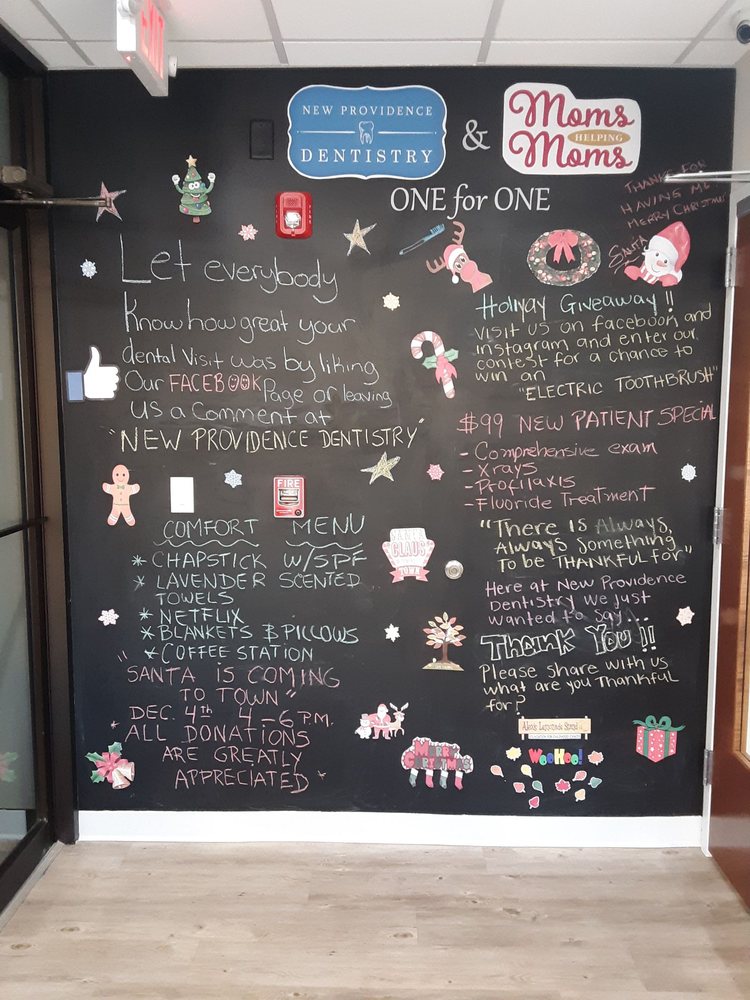 EXIT
NEW PROVIDENCE
DENTISTRY
&
Moms
HELPING
Moms
ONE for ONE
THANKS FOR
HAVING ME
MERRY CHRISTMAS
SANTA
Let everybody
Know how great your
dental visit was by liking
Our FACEBOOK Page or leaving
us a Comment at
"NEW PROVIDENCE DENTISTRY"
FIRE
COMFORT MENU
* CHAPSTICK W/SPF
* LAVENDER SCENTED
TOWELS
* NETFLIX
* BLANKETS & PILLOWS
* COFFEE STATION
"SANTA IS COMING
TO TOWN"
DEC. 4th 4-6 P.M.
ALL DONATIONS
ARE GREATLY
APPRECIATED
Holiyay Giveaway!!
Visit us on facebook and
instagram and enter our
contest for a chance to
win an
"ELECTRIC TOOTHBRUSH"
$99 NEW PATIENT SPECIAL
- Comprehensive exam
- Xrays
- Profilaxis
- Fluoride Treatment
"There is Always,
Always something
To be THANKFUL for"
Here at New Providence
Dentistry we just
wanted to say...
THANK YOU!!
Please share with us
what are you Thankful
for?
SANTA
CLAUS
TOWN
MERRY
CHRISTMAS
Alex's Lemonade Stand
FOUNDATION FOR CHILDHOOD CANCER
WooHoo!